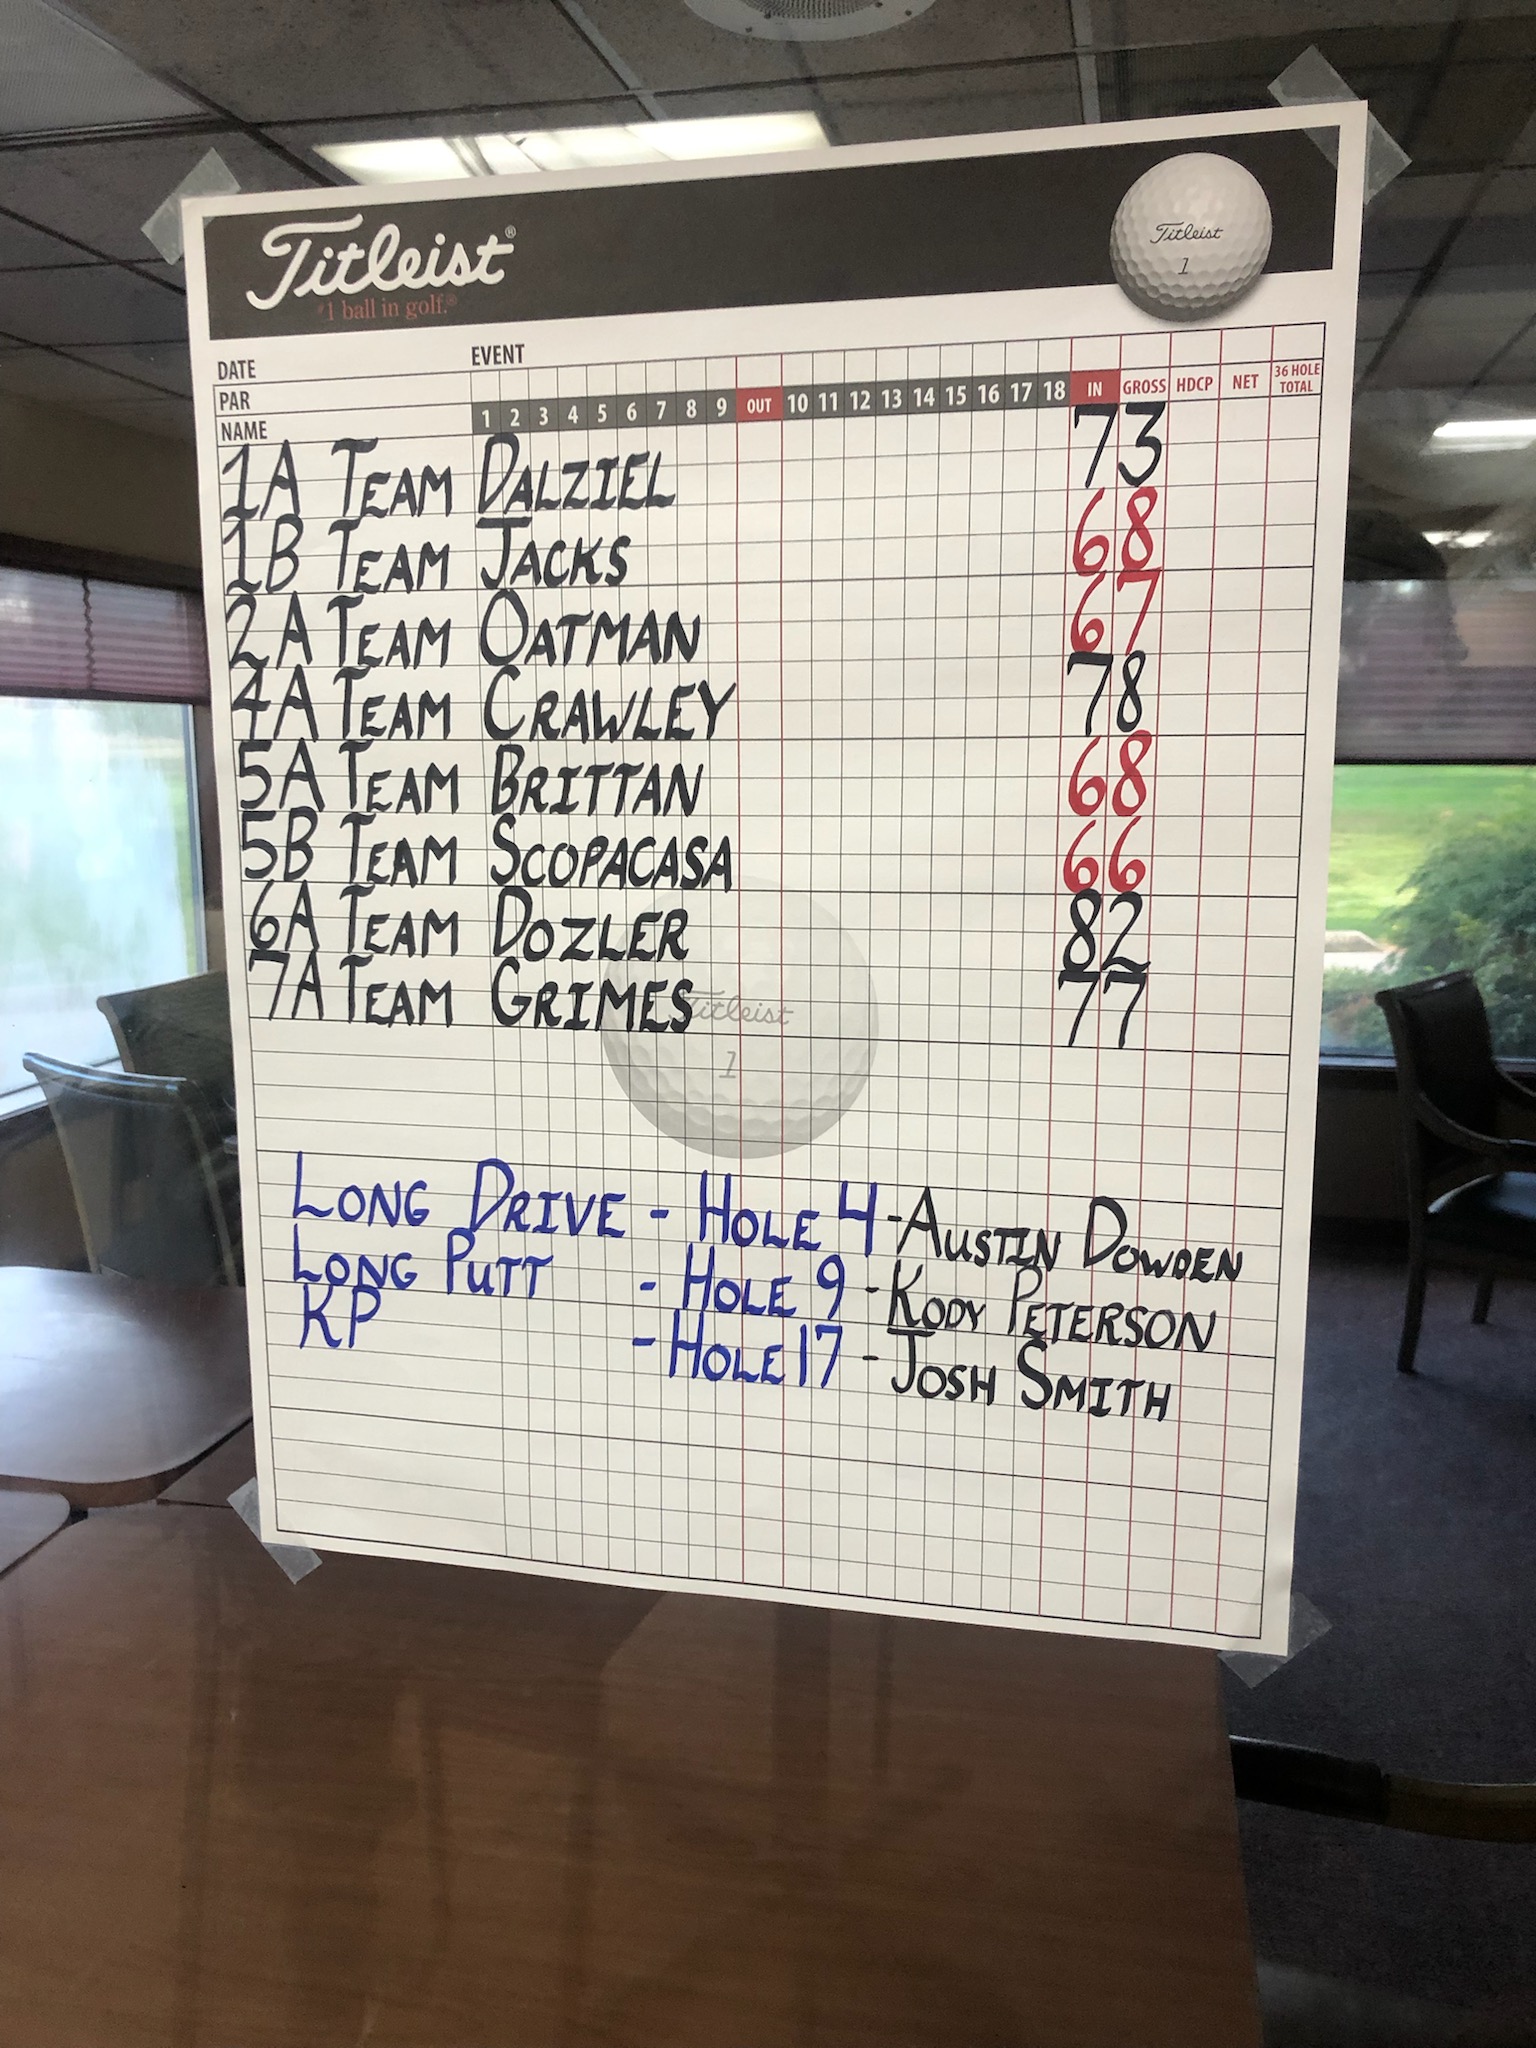 Titleist®
#1 ball in golf.®
Titleist
1
DATE EVENT
PAR
NAME 1 2 3 4 5 6 7 8 9 OUT 10 11 12 13 14 15 16 17 18 IN GROSS HDCP NET 36 HOLE TOTAL
1A TEAM DALZIEL 73
1B TEAM JACKS 68
2A TEAM OATMAN 67
4A TEAM CRAWLEY 78
5A TEAM BRITTAN 68
5B TEAM SCOPACASA 66
6A TEAM DOZLER 82
7A TEAM GRIMES 77
Titleist
1
LONG DRIVE - HOLE 4 - AUSTIN DOWDEN
LONG PUTT - HOLE 9 - KODY PETERSON
KP - HOLE 17 - JOSH SMITH